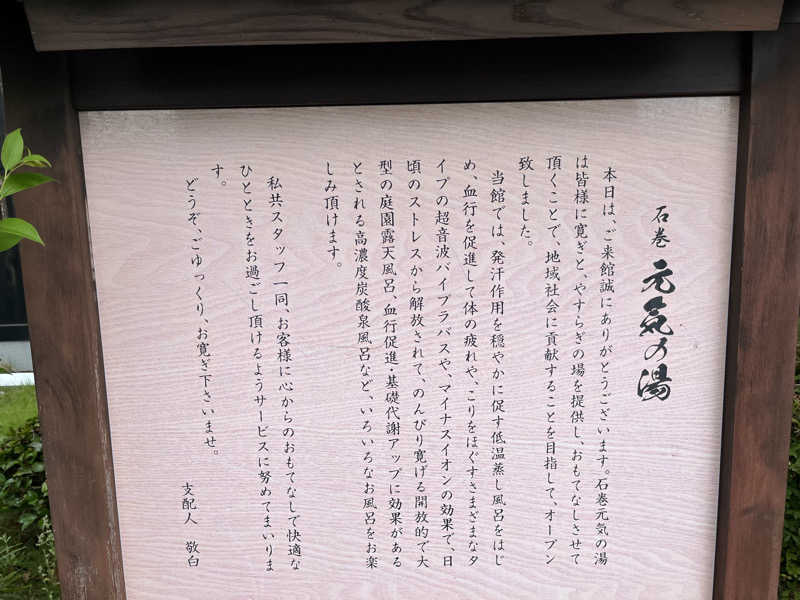 石巻 元気の湯
本日は、ご来館誠にありがとうございます。石巻元気の湯
は皆様に寛ぎと、やすらぎの場を提供し、おもてなしさせて
頂くことで、地域社会に貢献することを目指して、オープン
致しました。
当館では、発汗作用を穏やかに促す低温蒸し風呂をはじ
め、血行を促進して体の疲れや、こりをほぐすさまざまなタ
イプの超音波バイブラバスや、マイナスイオンの効果で、日
頃のストレスから解放されて、のんびり寛げる開放的で大
型の庭園露天風呂、血行促進・基礎代謝アップに効果がある
とされる高濃度炭酸泉風呂など、いろいろなお風呂をお楽
しみ頂けます。
私共スタッフ一同、お客様に心からのおもてなしで快適な
ひとときをお過ごし頂けるようサービスに努めてまいりま
す。
どうぞ、ごゆっくり、お寛ぎ下さいませ。
支配人 敬白